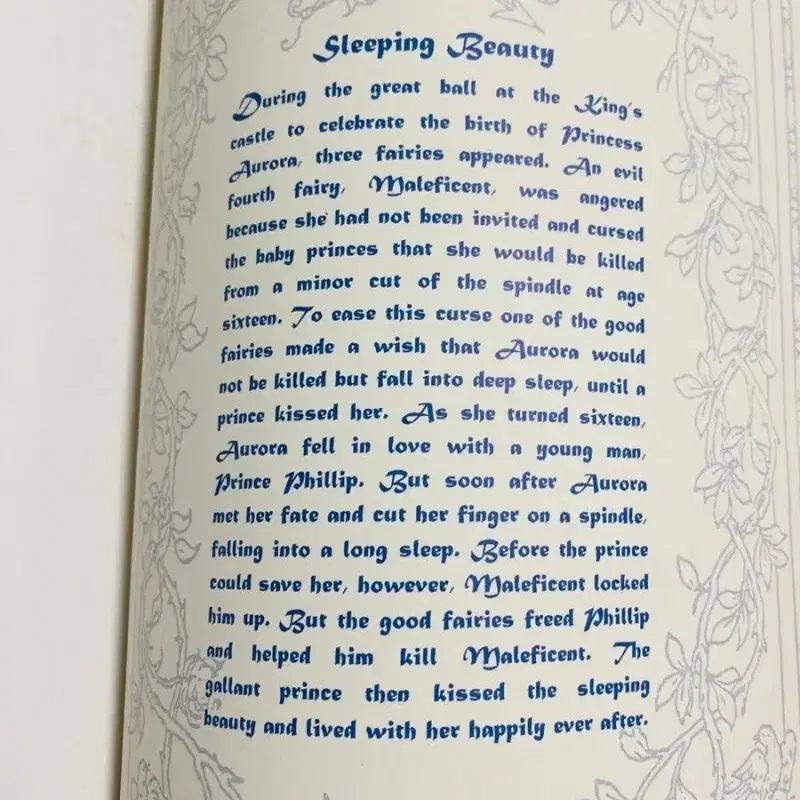 Sleeping Beauty
During the great ball at the King's
castle to celebrate the birth of Princess
Aurora, three fairies appeared. An evil
fourth fairy, Maleficent, was angered
because she had not been invited and cursed
the baby princes that she would be killed
from a minor cut of the spindle at age
sixteen. To ease this curse one of the good
fairies made a wish that Aurora would
not be killed but fall into deep sleep, until a
prince kissed her. As she turned sixteen,
Aurora fell in love with a young man,
Prince Phillip. But soon after Aurora
met her fate and cut her finger on a spindle,
falling into a long sleep. Before the prince
could save her, however, Maleficent locked
him up. But the good fairies freed Phillip
and helped him kill Maleficent. The
gallant prince then kissed the sleeping
beauty and lived with her happily ever after.